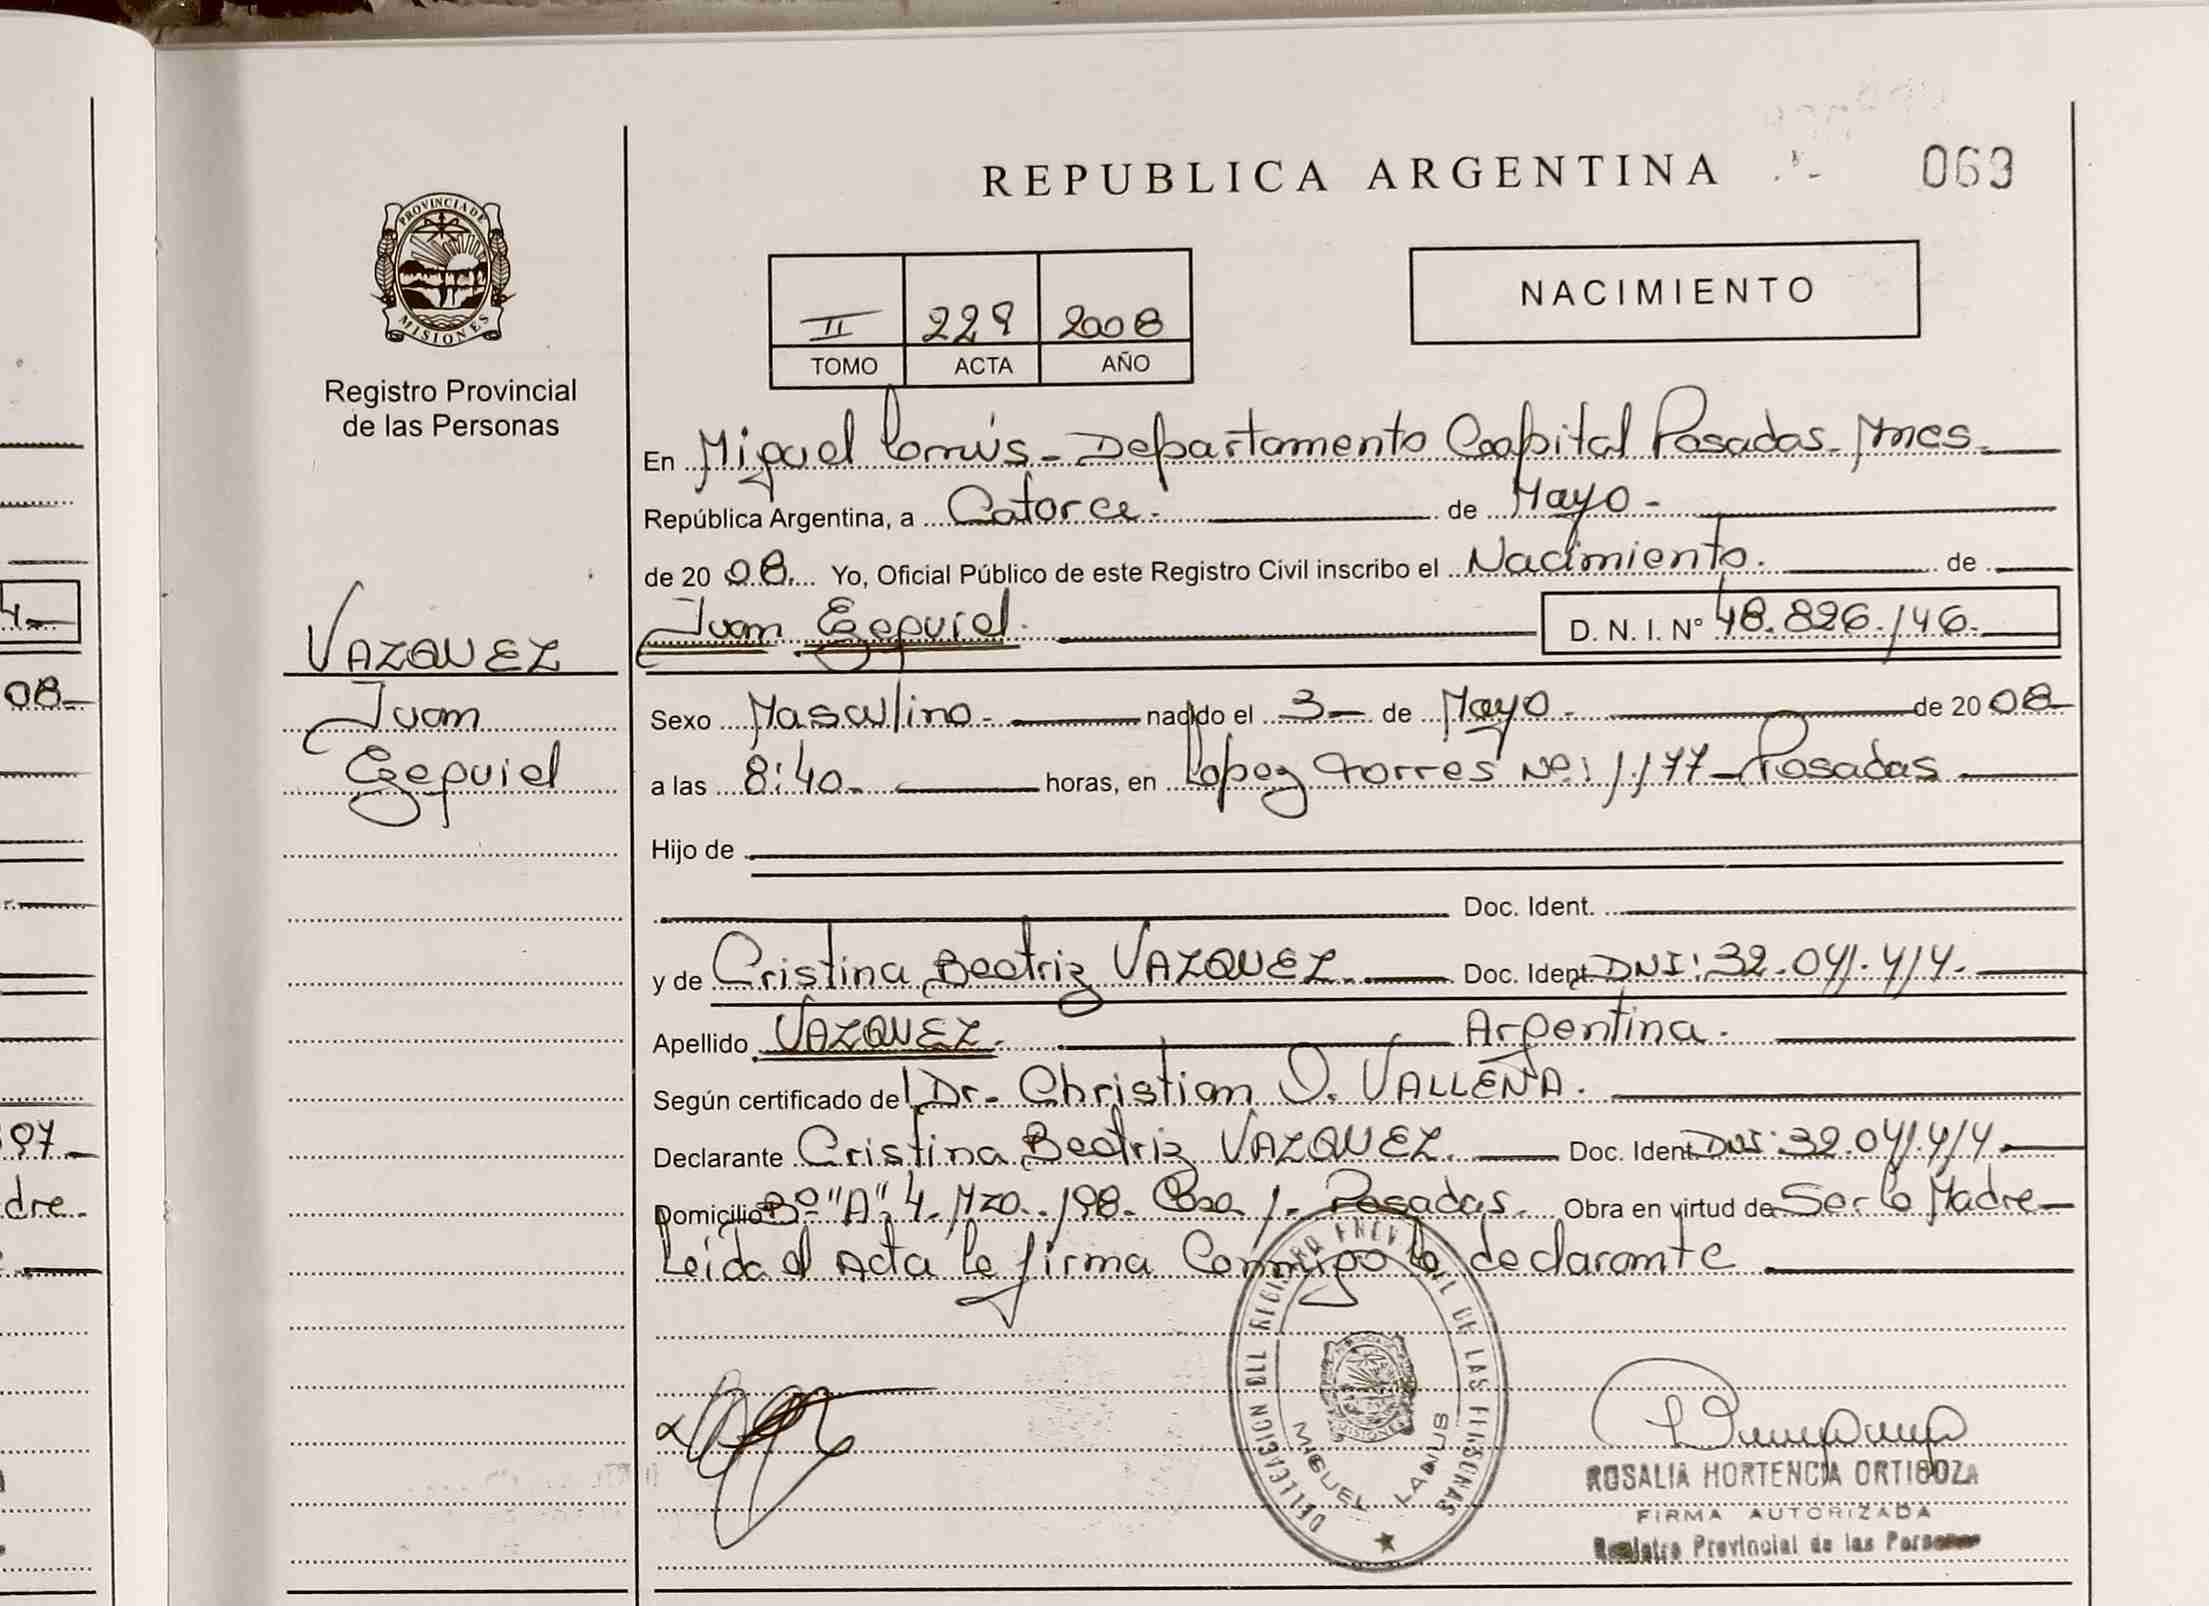 REPUBLICA ARGENTINA
063
PROVINCIA DE
MISIONES
Registro Provincial
de las Personas
II 229 2008
TOMO ACTA AÑO
NACIMIENTO
En Miguel Lanús - Departamento Capital Posadas - Mnes.
República Argentina, a Catorce. de Mayo -
de 20 08. Yo, Oficial Público de este Registro Civil inscribo el Nacimiento. de
Juan Ezequiel. D. N. I. Nº 48.826.146.
VAZQUEZ
Juan
Ezequiel
Sexo Masculino - nacido el 3 - de Mayo - de 20 08
a las 8:40 - horas, en Lopez Torres Nº: 1.177 - Posadas
Hijo de
Doc. Ident.
y de Cristina Beatriz VAZQUEZ. Doc. Ident. DNI: 32.041.414.
Apellido VAZQUEZ. Argentina.
Según certificado del Dr. Christian O. VALLEÑA.
Declarante Cristina Beatriz VAZQUEZ. Doc. Ident. DNI: 32.041.414
Domicilio Bº "A" 4. Mza. 198. Casa 1 - Posadas. Obra en virtud de Ser la Madre -
Leída el Acta la firma Conmigo la declarante
DELEGACION DEL REGISTRO PROVINCIAL DE LAS PERSONAS
MIGUEL LANUS
ROSALIA HORTENCIA ORTIGOZA
FIRMA AUTORIZADA
Registro Provincial de las Personas
08
97
dre.